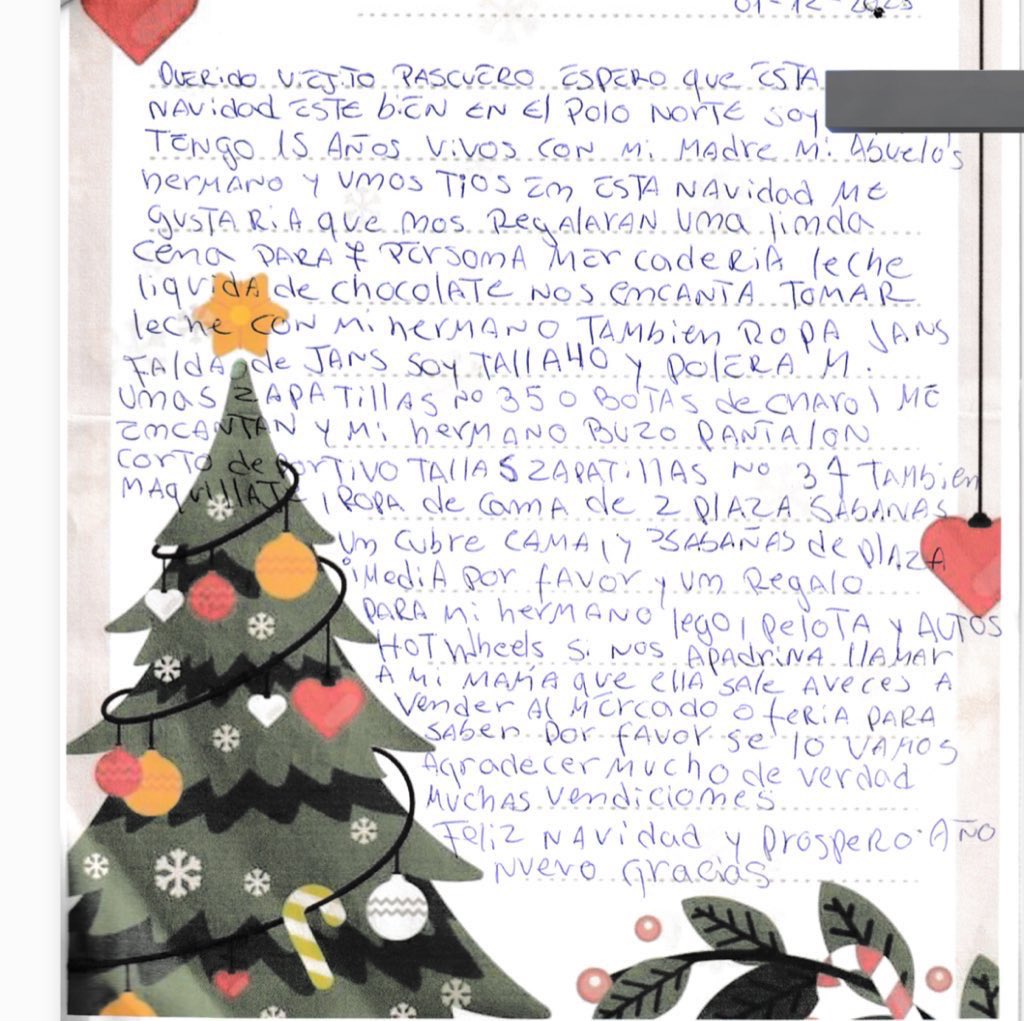 01-12-2023
Querido viejito pascuero espero que esta
navidad este bien en el polo norte soy
Tengo 15 años vivos con mi madre mi abuelo's
hermano y umos tios em esta navidad me
gustaria que mos regalaran uma limda
cena para 7 persoma mercaderia leche
liquida de chocolate nos emcanta tomar
leche con mi hermano tambien ropa jans
falda de jans soy talla 40 y polera M.
umas zapatillas no 35 o botas de charol me
emcantan y mi hermano buzo pantalon
corto deportivo talla S zapatillas no 37 tambien
maquillate, ropa de cama de 2 plaza sabanas
um cubre cama, y sabañas de plaza
imedia por favor y um regalo
para mi hermano lego, pelota y autos
Hot Wheels si nos apadrina llamar
a mi mamá que ella sale aveces a
vender al mercado o feria para
saber por favor se lo vamos
agradecer mucho de verdad
muchas vendiciomes
Feliz navidad y prospero año
nuevo gracias